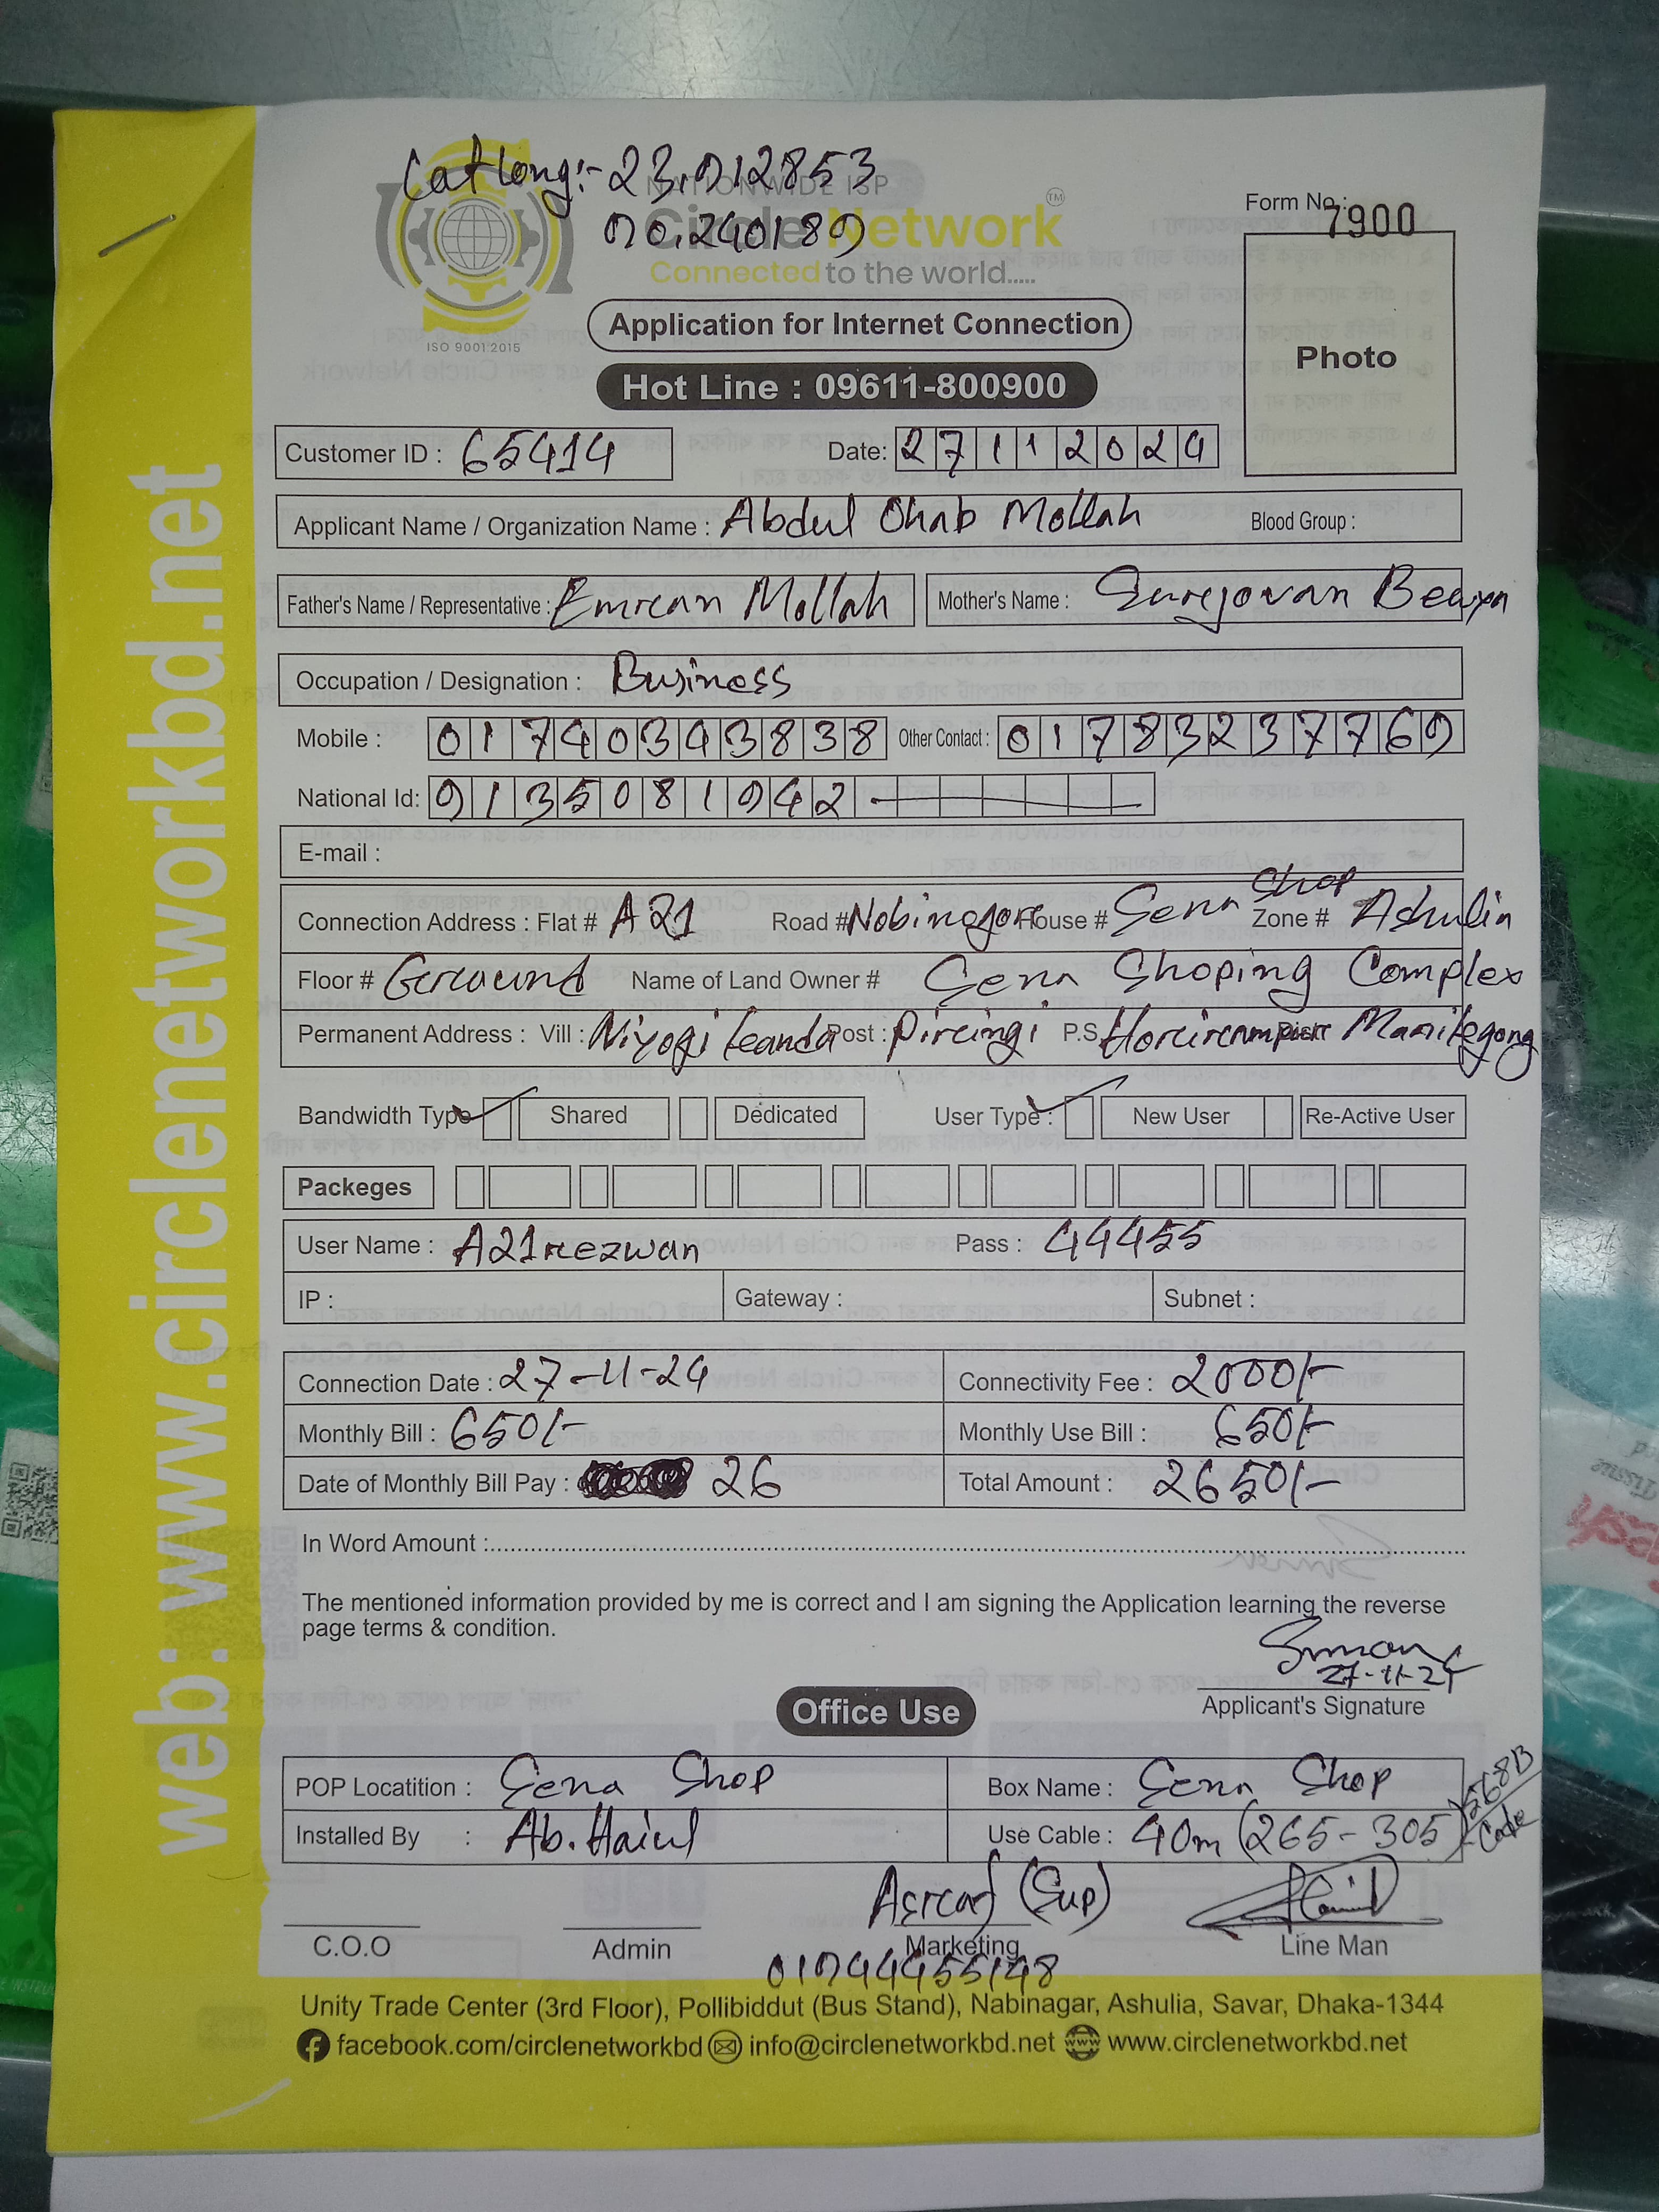 Cat long:- 23.912853
90.260189
NATIONWIDE ISP
Circle Network TM
Connected to the world.....
ISO 9001:2015
Form No.: 7900
Photo
Application for Internet Connection
Hot Line : 09611-800900
Customer ID : 65414 Date: 27112024
Applicant Name / Organization Name : Abdul Ohab Mollah Blood Group :
Father's Name / Representative : Emran Mollah Mother's Name :
Occupation / Designation : Business
Mobile : 01740343838 Other Contact : 01783237769
National Id: 9135081942
E-mail :
Connection Address : Flat # A21 Road # Nobinogor House # Sena Shop Zone # Ashulia
Floor # Ground Name of Land Owner # Sena Shoping Complex
Permanent Address : Vill : Post : P.S. Dist:
Bandwidth Type : Shared Dedicated User Type : New User Re-Active User
Packeges
User Name : A21rezwan Pass : 44455
IP : Gateway : Subnet :
Connection Date : 27-11-24 Connectivity Fee : 2000/-
Monthly Bill : 650/- Monthly Use Bill : 650/-
Date of Monthly Bill Pay : 26 Total Amount : 2650/-
In Word Amount :
The mentioned information provided by me is correct and I am signing the Application learning the reverse
page terms & condition.
27-11-24
Applicant's Signature
Office Use
POP Locatition : Sena Shop Box Name : Sena Shop
Installed By : Use Cable : 40m (265-305) 568B Code
(Sup)
C.O.O Admin Marketing Line Man
01944455148
Unity Trade Center (3rd Floor), Pollibiddut (Bus Stand), Nabinagar, Ashulia, Savar, Dhaka-1344
facebook.com/circlenetworkbd info@circlenetworkbd.net www.circlenetworkbd.net
web: www.circlenetworkbd.net